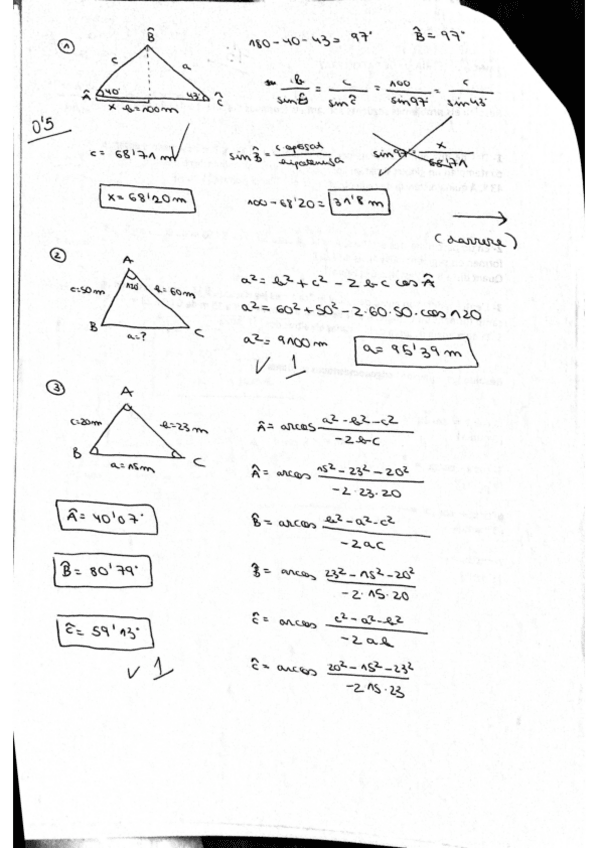 ① B̂ 180-40-43 = 97° B̂ = 97°
c a
Â 40° 43° Ĉ
x b=100m
b/sin B̂ = c/sin Ĉ = 100/sin97 = c/sin43
0'5
c = 68'71 m sin B̂ = c oposat/hipotenusa sin 97 = x/68'71
x = 68'20 m 100-68'20 = 31'8 m
(darrere)
② A
c=50m 120 b=60m
B C
a=?
a² = b² + c² - 2bc cos Â
a² = 60² + 50² - 2·60·50·cos 120
a² = 9100 m a = 95'39 m
1
③ A
c=20m b=23m
B C
a=15m
Â = arcos a²-b²-c²/-2bc
Â = arcos 15²-23²-20²/-2·23·20
Â = 40'07°
B̂ = arcos b²-a²-c²/-2ac
B̂ = 80'79°
B̂ = arcos 23²-15²-20²/-2·15·20
Ĉ = 59'13°
Ĉ = arcos c²-a²-b²/-2ab
1
Ĉ = arcos 20²-15²-23²/-2·15·23